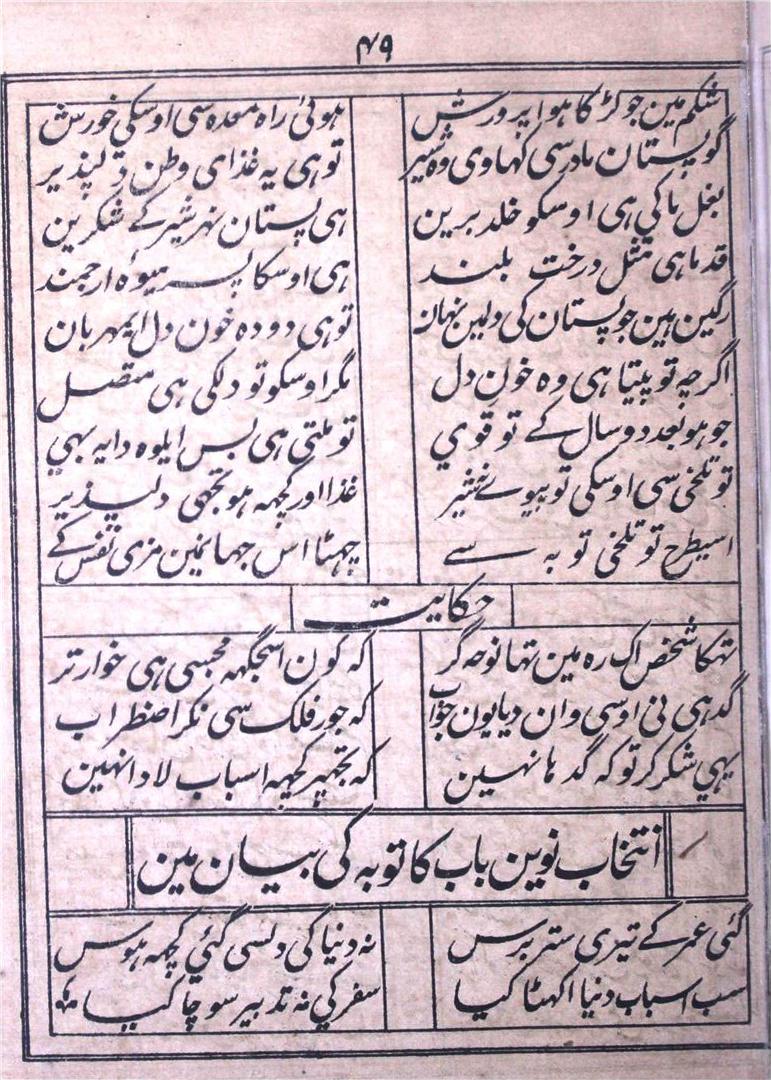 ۴۹
شکم مین جو لڑکا ہوا پرورش ہوئی راہ معدہ سی اوسکی خورش
گو پستان مادر سی کہاوی وہ شیر تو ہی یہ غذای وطن دلپذیر
بغل ماکی ہی اوسکو خلد برین ہی پستان نہر شیر کے شکرین
قد ما ہی مثل درخت بلند ہی اوسکا پسر میوہ ارجمند
رگین ہین جو پستان کی دلین نہان تو ہی دودہ خون دل ایمہربان
اگرچہ تو پیتا ہی وہ خون دل مگر اوسکو تو دلکی ہی متصل
جو ہو بعد دو سال کے تو قوي تو ملتی ہی بس ایلوہ دایہ بہي
تو تلخی سی اوسکی تو پیوے نشیر غذا اور کچہہ ہو تجھی دلپذیر
اسیطرح تو تلخی توبہ سے چہٹا اس جہانمین مزی نفس کے
حکایت
تہکا شخص اک رہ مین تہا نوحہ گر کہ کون اسجگہہ مجسی ہی خوار تر
گدہی نی اوسی وان دیا یون جواب کہ جور فلک سی نکر اضطراب
یہي شکر کر تو کہ گدہا نہین کہ تجہپر کچہہ اسباب لادا نہین
انتخاب نوین باب کا توبہ کی بیان مین
گئی عمر کے تیری ستر برس نہ دنیا کی دلسی گئي کچہہ ہوس
سب اسباب دنیا اکہٹا کیا سفر کي نہ تدبیر سوچا کیا